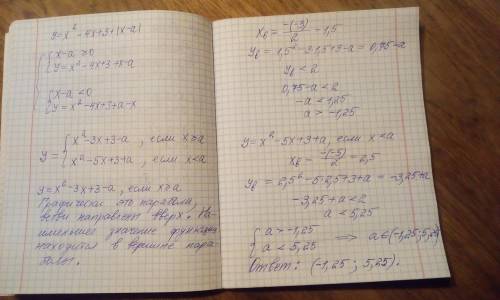 y=x²-4x+3+|x-a|
{x-a≥0
y=x²-4x+3+x-a
{x-a<0
y=x²-4x+3+a-x
y={x²-3x+3-a, если x≥a
x²-5x+3+a, если x<a
y=x²-3x+3-a, если x≥a
Графически это парабола,
ветви направлены вверх. На-
именьшее значение функции
находится в вершине пара-
болы.
xв=-(-3)/2=1,5
yв=1,5²-3·1,5+3-a=0,75-a
yв<2
0,75-a<2
-a<1,25
a>-1,25
y=x²-5x+3+a, если x<a
xв=-(-5)/2=2,5
yв=2,5²-5·2,5+3+a=-3,25+a
-3,25+a<2
a<5,25
{a>-1,25
a<5,25 ⟹ a∈(-1,25;5,25)
Ответ: (-1,25; 5,25).